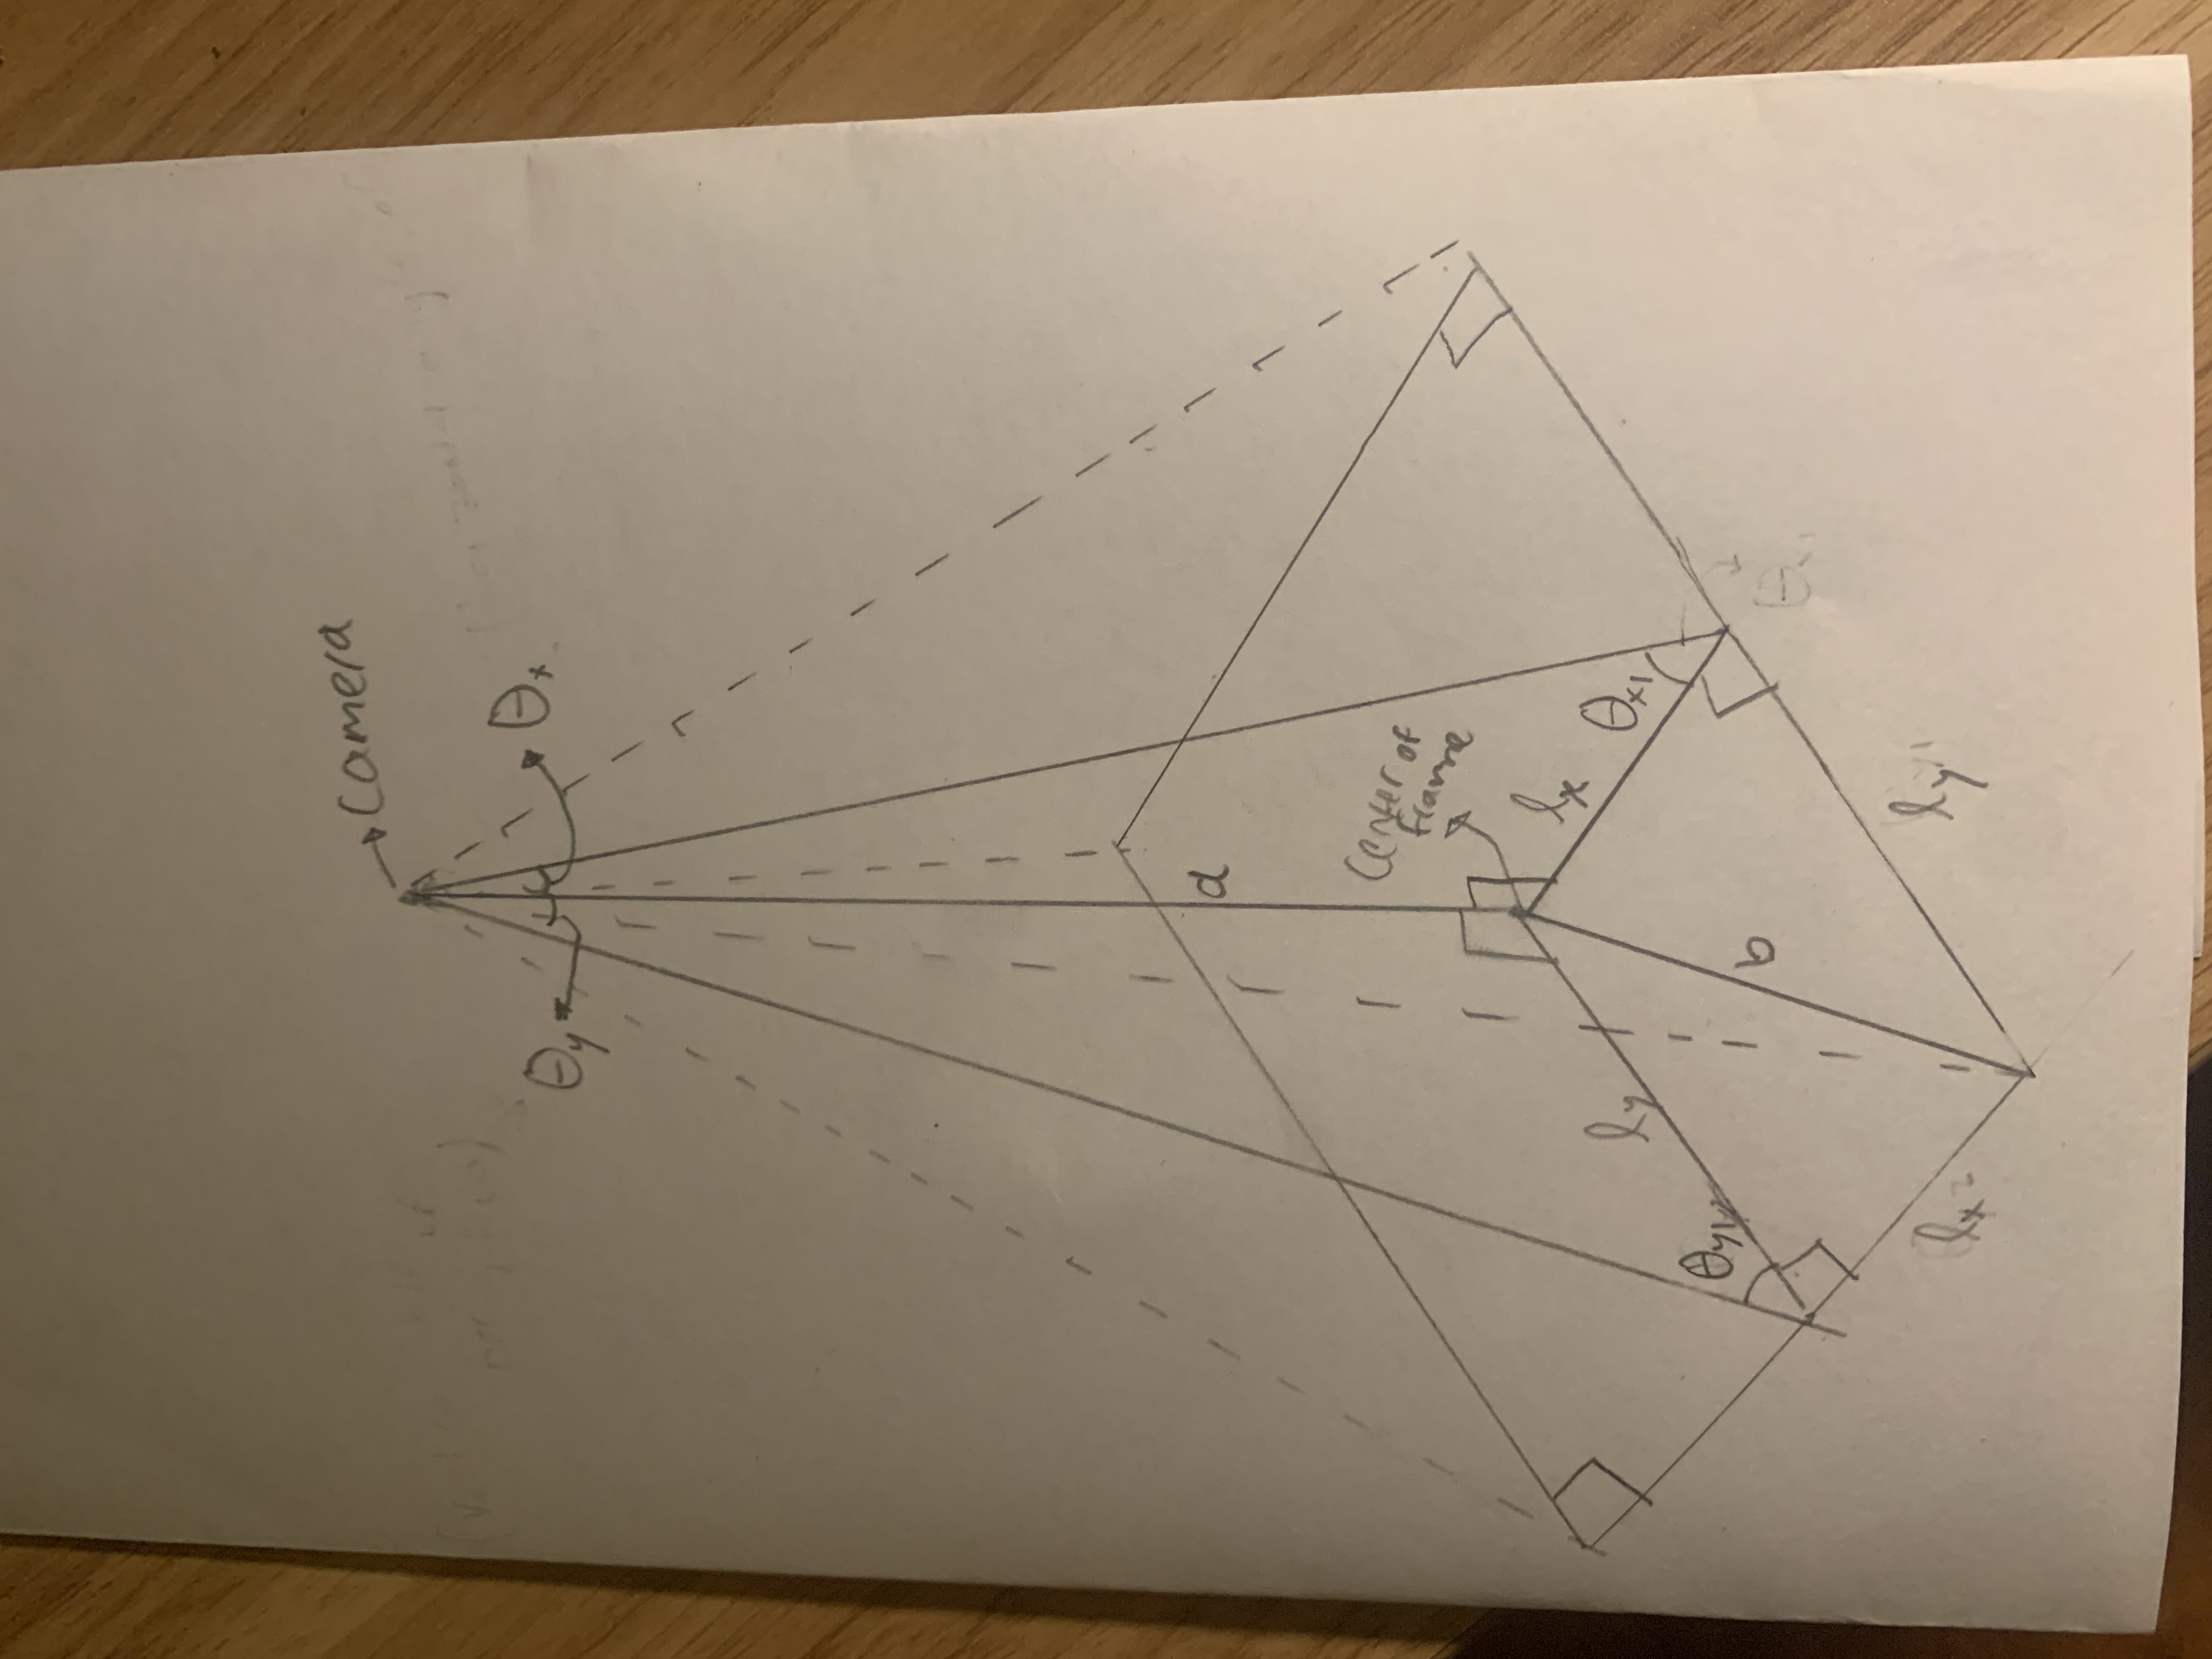 Camera
θy
θx
a
Center of
frame
lx
ly
θx1
θy1
b
ly1
lx2